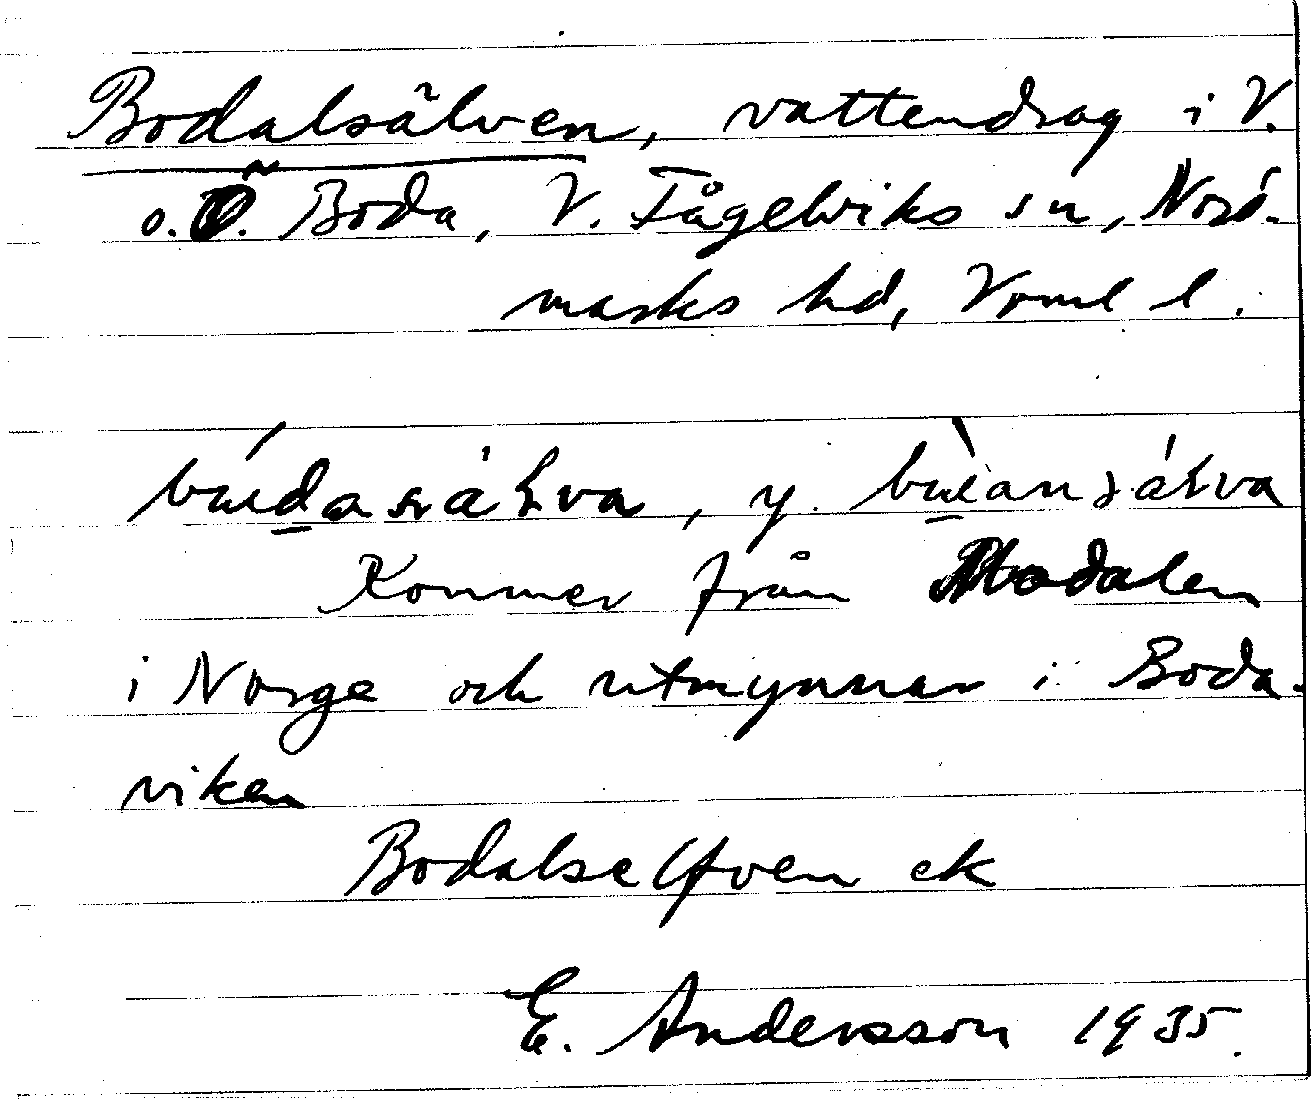 Bodalsälven, vattendrag i V.
o. Ö. Boda, V. Fågelviks sn, Nord-
marks hd, Vrml l.
Kommer från
i Norge och utmynnar i Boda-
viken
Bodalselfven ek
E. Andersson 1935.